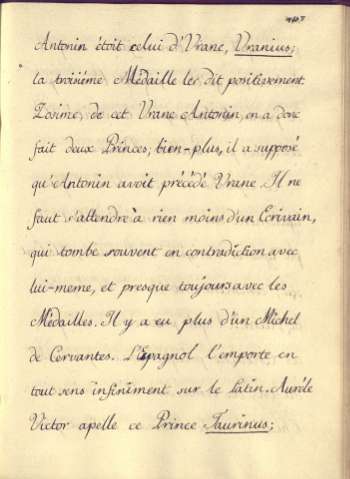 Antonin étoit celui d'Vrane, Vranius;
la troisiéme Médaille les dit positivement
Zosime, de cet Vrane Antonin, en a donc
fait deux Princes; bien-plus, il a supposé
qu'Antonin avoit précédé Vrane. Il ne
faut s'attendre à rien moins d'un Ecrivain,
qui tombe souvent en contradiction avec
lui-meme, et presque toujours avec les
Médailles. Il y a eu plus d'un Michel
de Cervantes. L'Espagnol l'emporte en
tout sens infiniment sur le Latin. Auréle
Victor apelle ce Prince Taurinus;